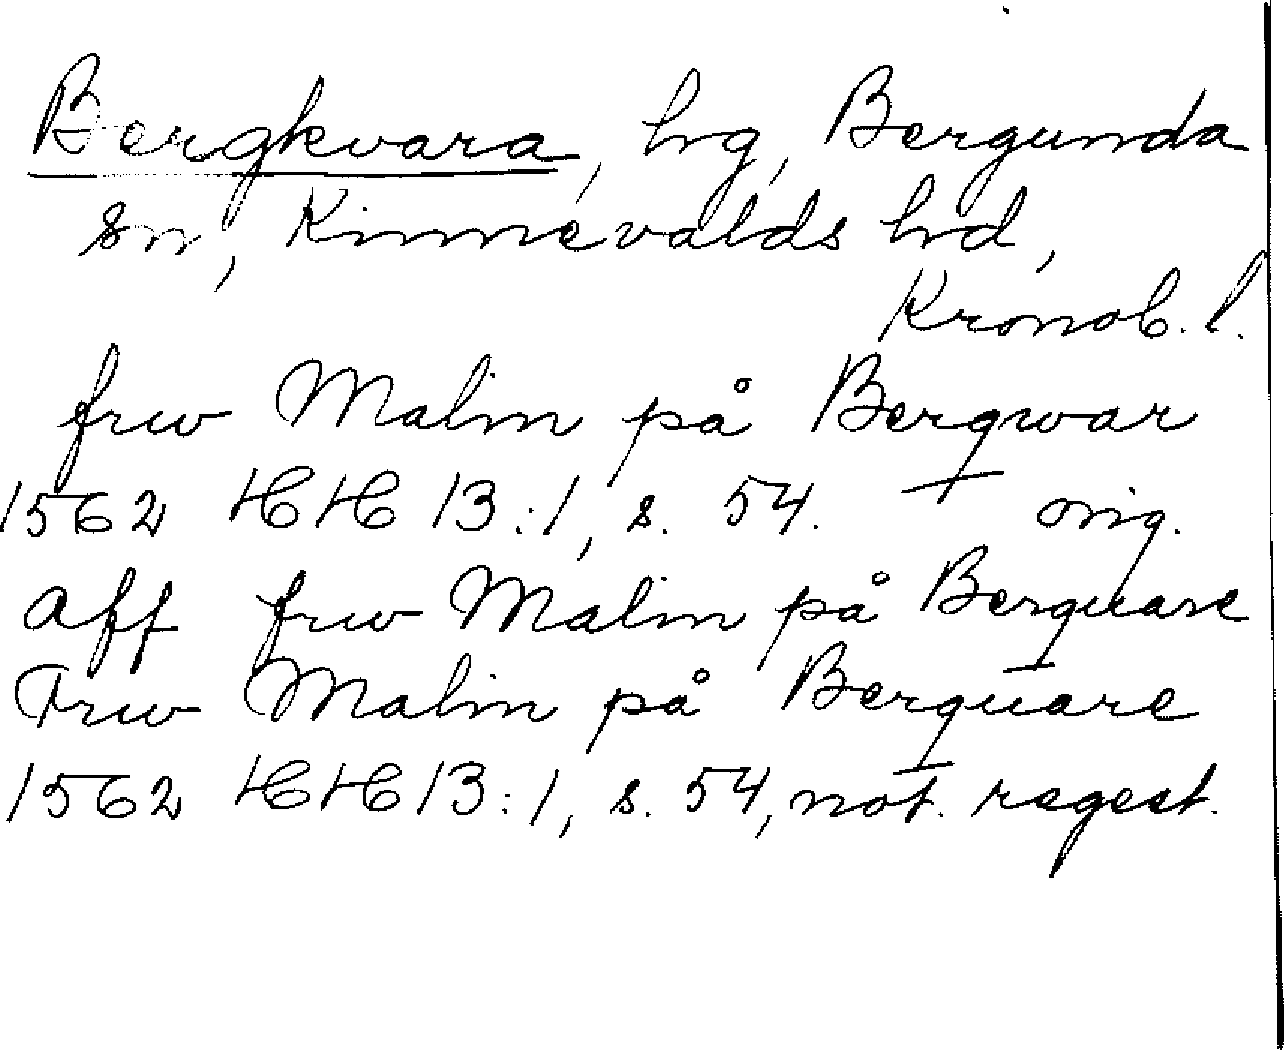 Bergkvara, hg, Bergunda
sn, Kinnevalds hd,
Kronob. l.
frw Malin på Bergwar
1562 HH 13:1, s. 54. orig.
aff frw Malin på Berquare
Frw Malin på Berquare
1562 HH 13:1, s. 54, not. regest.